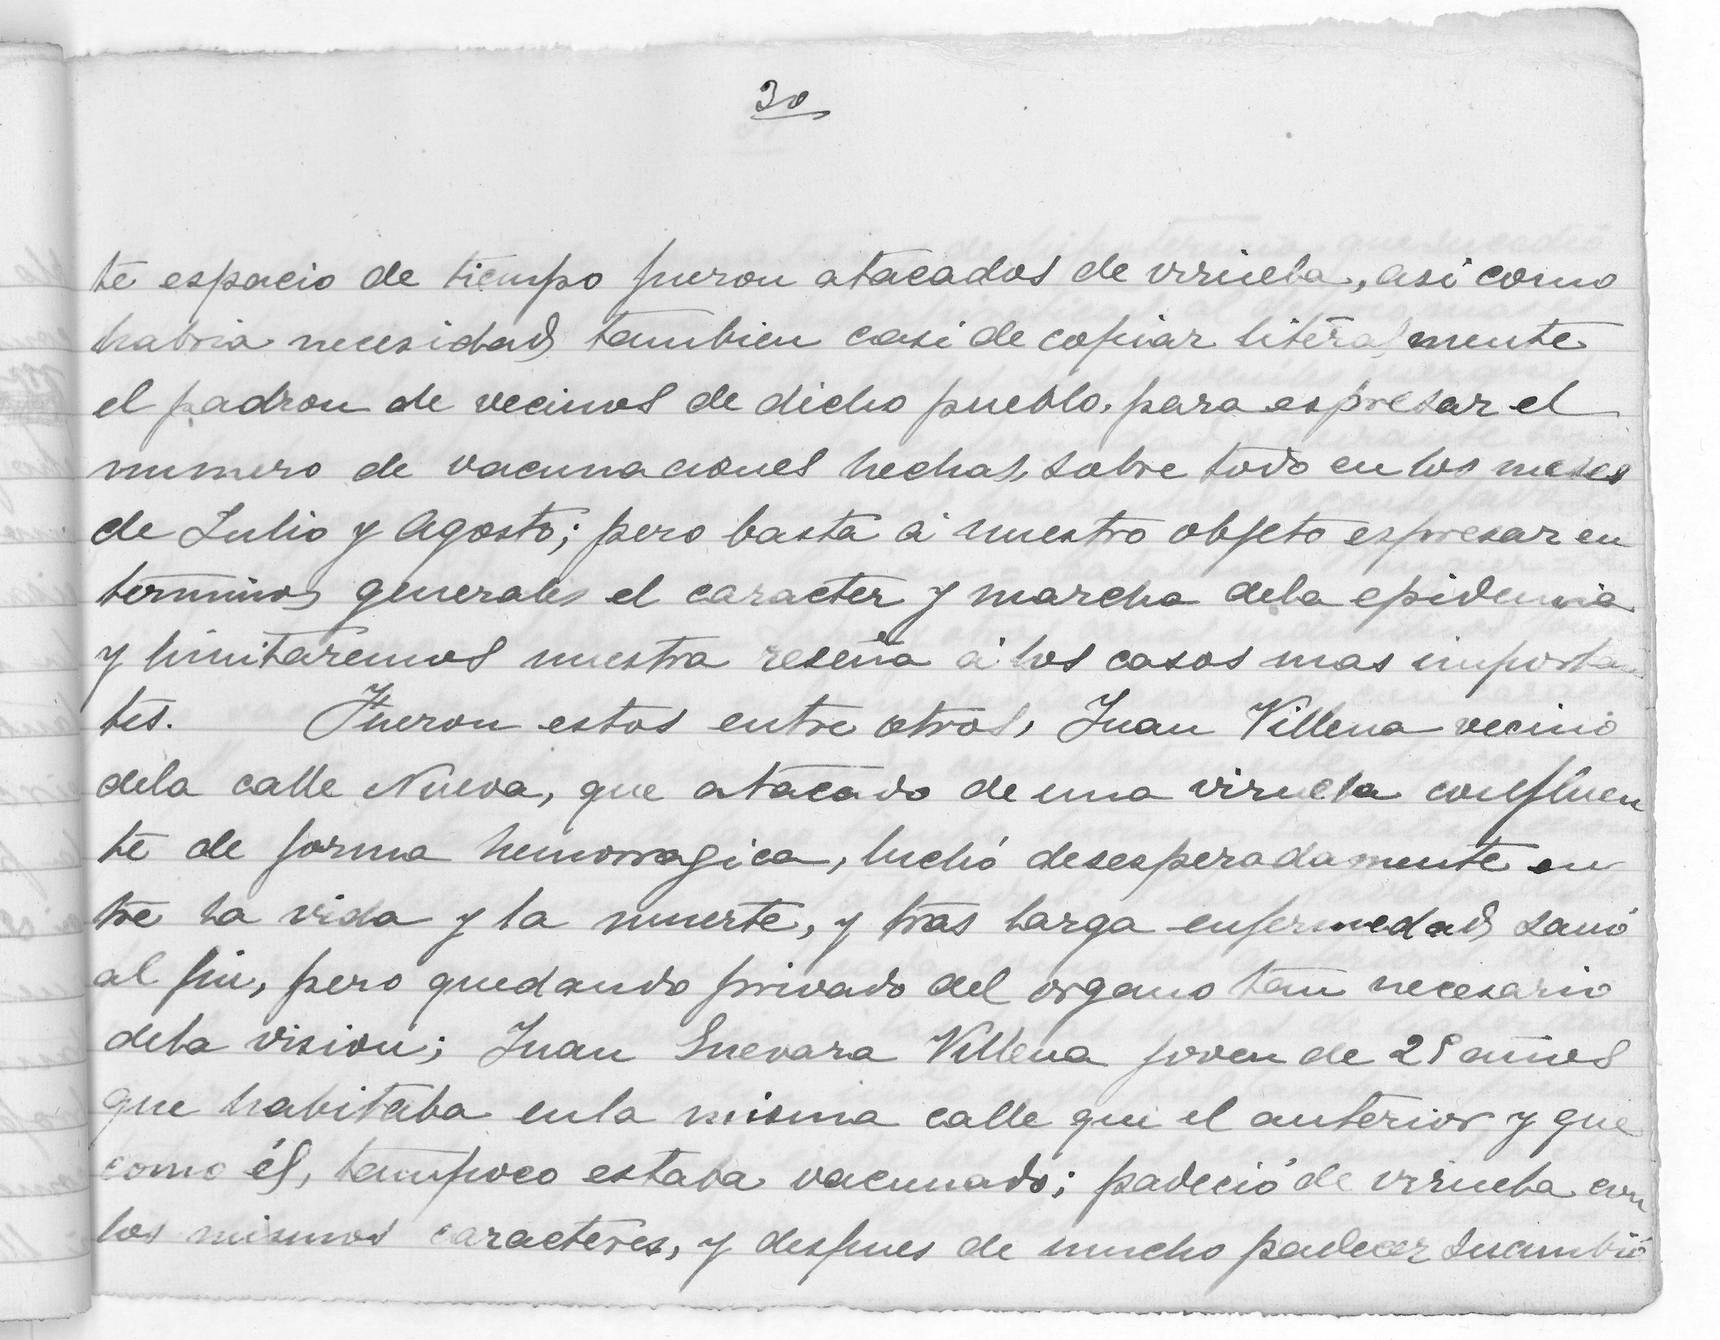 30
te espacio de tiempo fueron atacados de viruela, asi como
habria necesidad tambien casi de copiar literalmente
el padron de vecinos de dicho pueblo, para espresar el
numero de vacunaciones hechas, sobre todo en los meses
de Julio y Agosto; pero basta á nuestro objeto espresar en
terminos generales el caracter y marcha dela epidemia
y limitaremos nuestra reseña á los casos mas importan
tes. Fueron estos entre otros, Juan Villena vecino
dela calle Nueva, que atacado de una viruela confluen
te de forma hemorragica, luchó desesperadamente en
tre la vida y la muerte, y tras larga enfermedad sanó
al fin, pero quedando privado del organo tan necesario
dela vision; Juan Guevara Villena joven de años
que habitaba enla misma calle que el anterior y que
como él, tampoco estaba vacunado; padeció de viruela con
los mismos caracteres, y despues de mucho padecer sucumbió